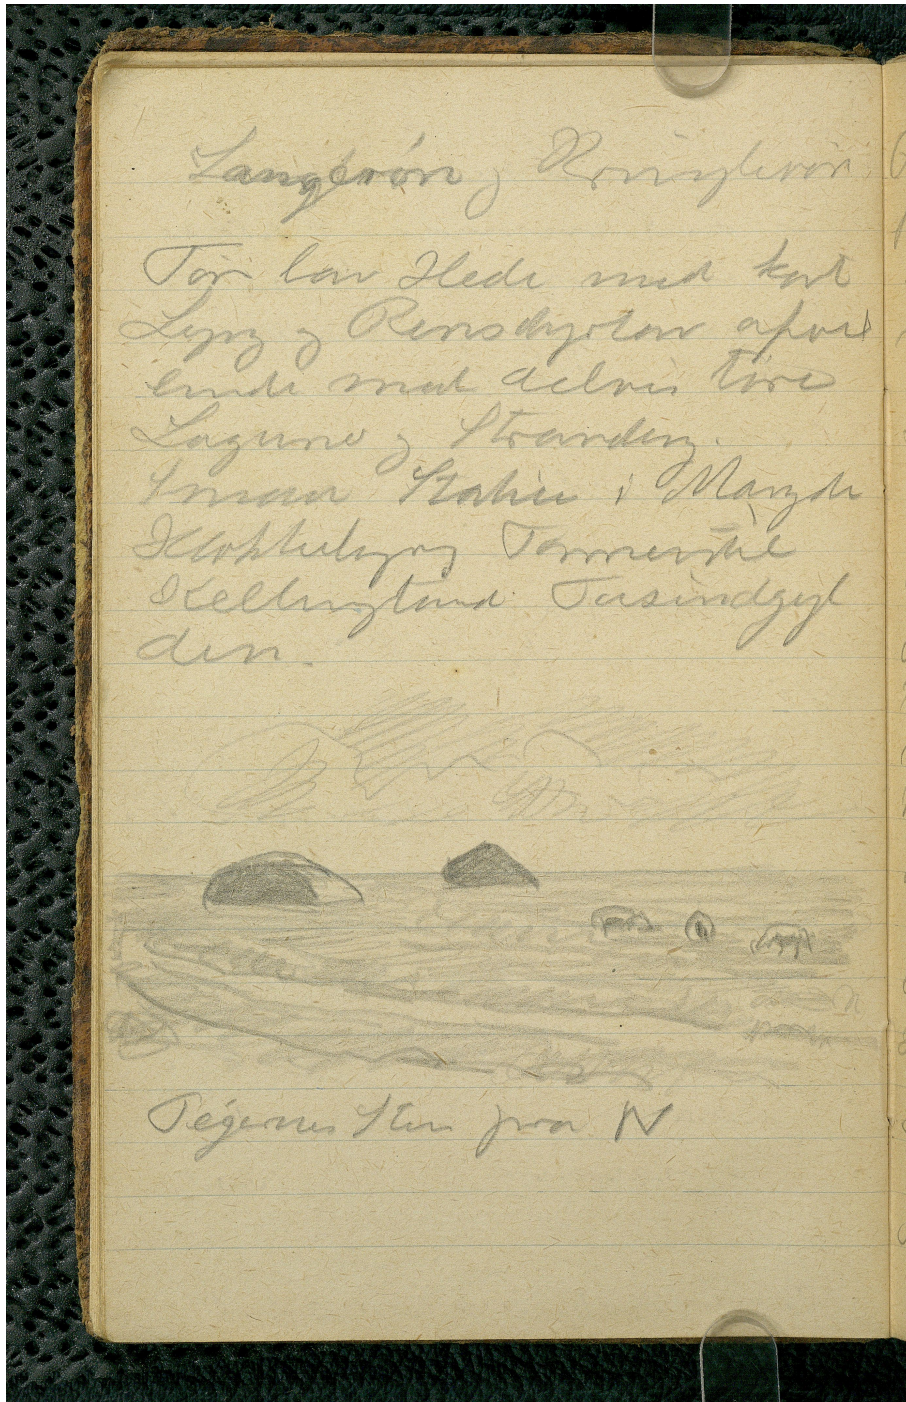 Langerön og Kringlerön
Tör lav Hede med kort
Lyng og Rensdyrlav afvex
lende med delvis törre
Lagune og Strandeng.
Smaa Stakke i Mængde
Klokkelyng Tormentil
Kellingtand Tusindgyl
den.
Tegernes Sten fra N